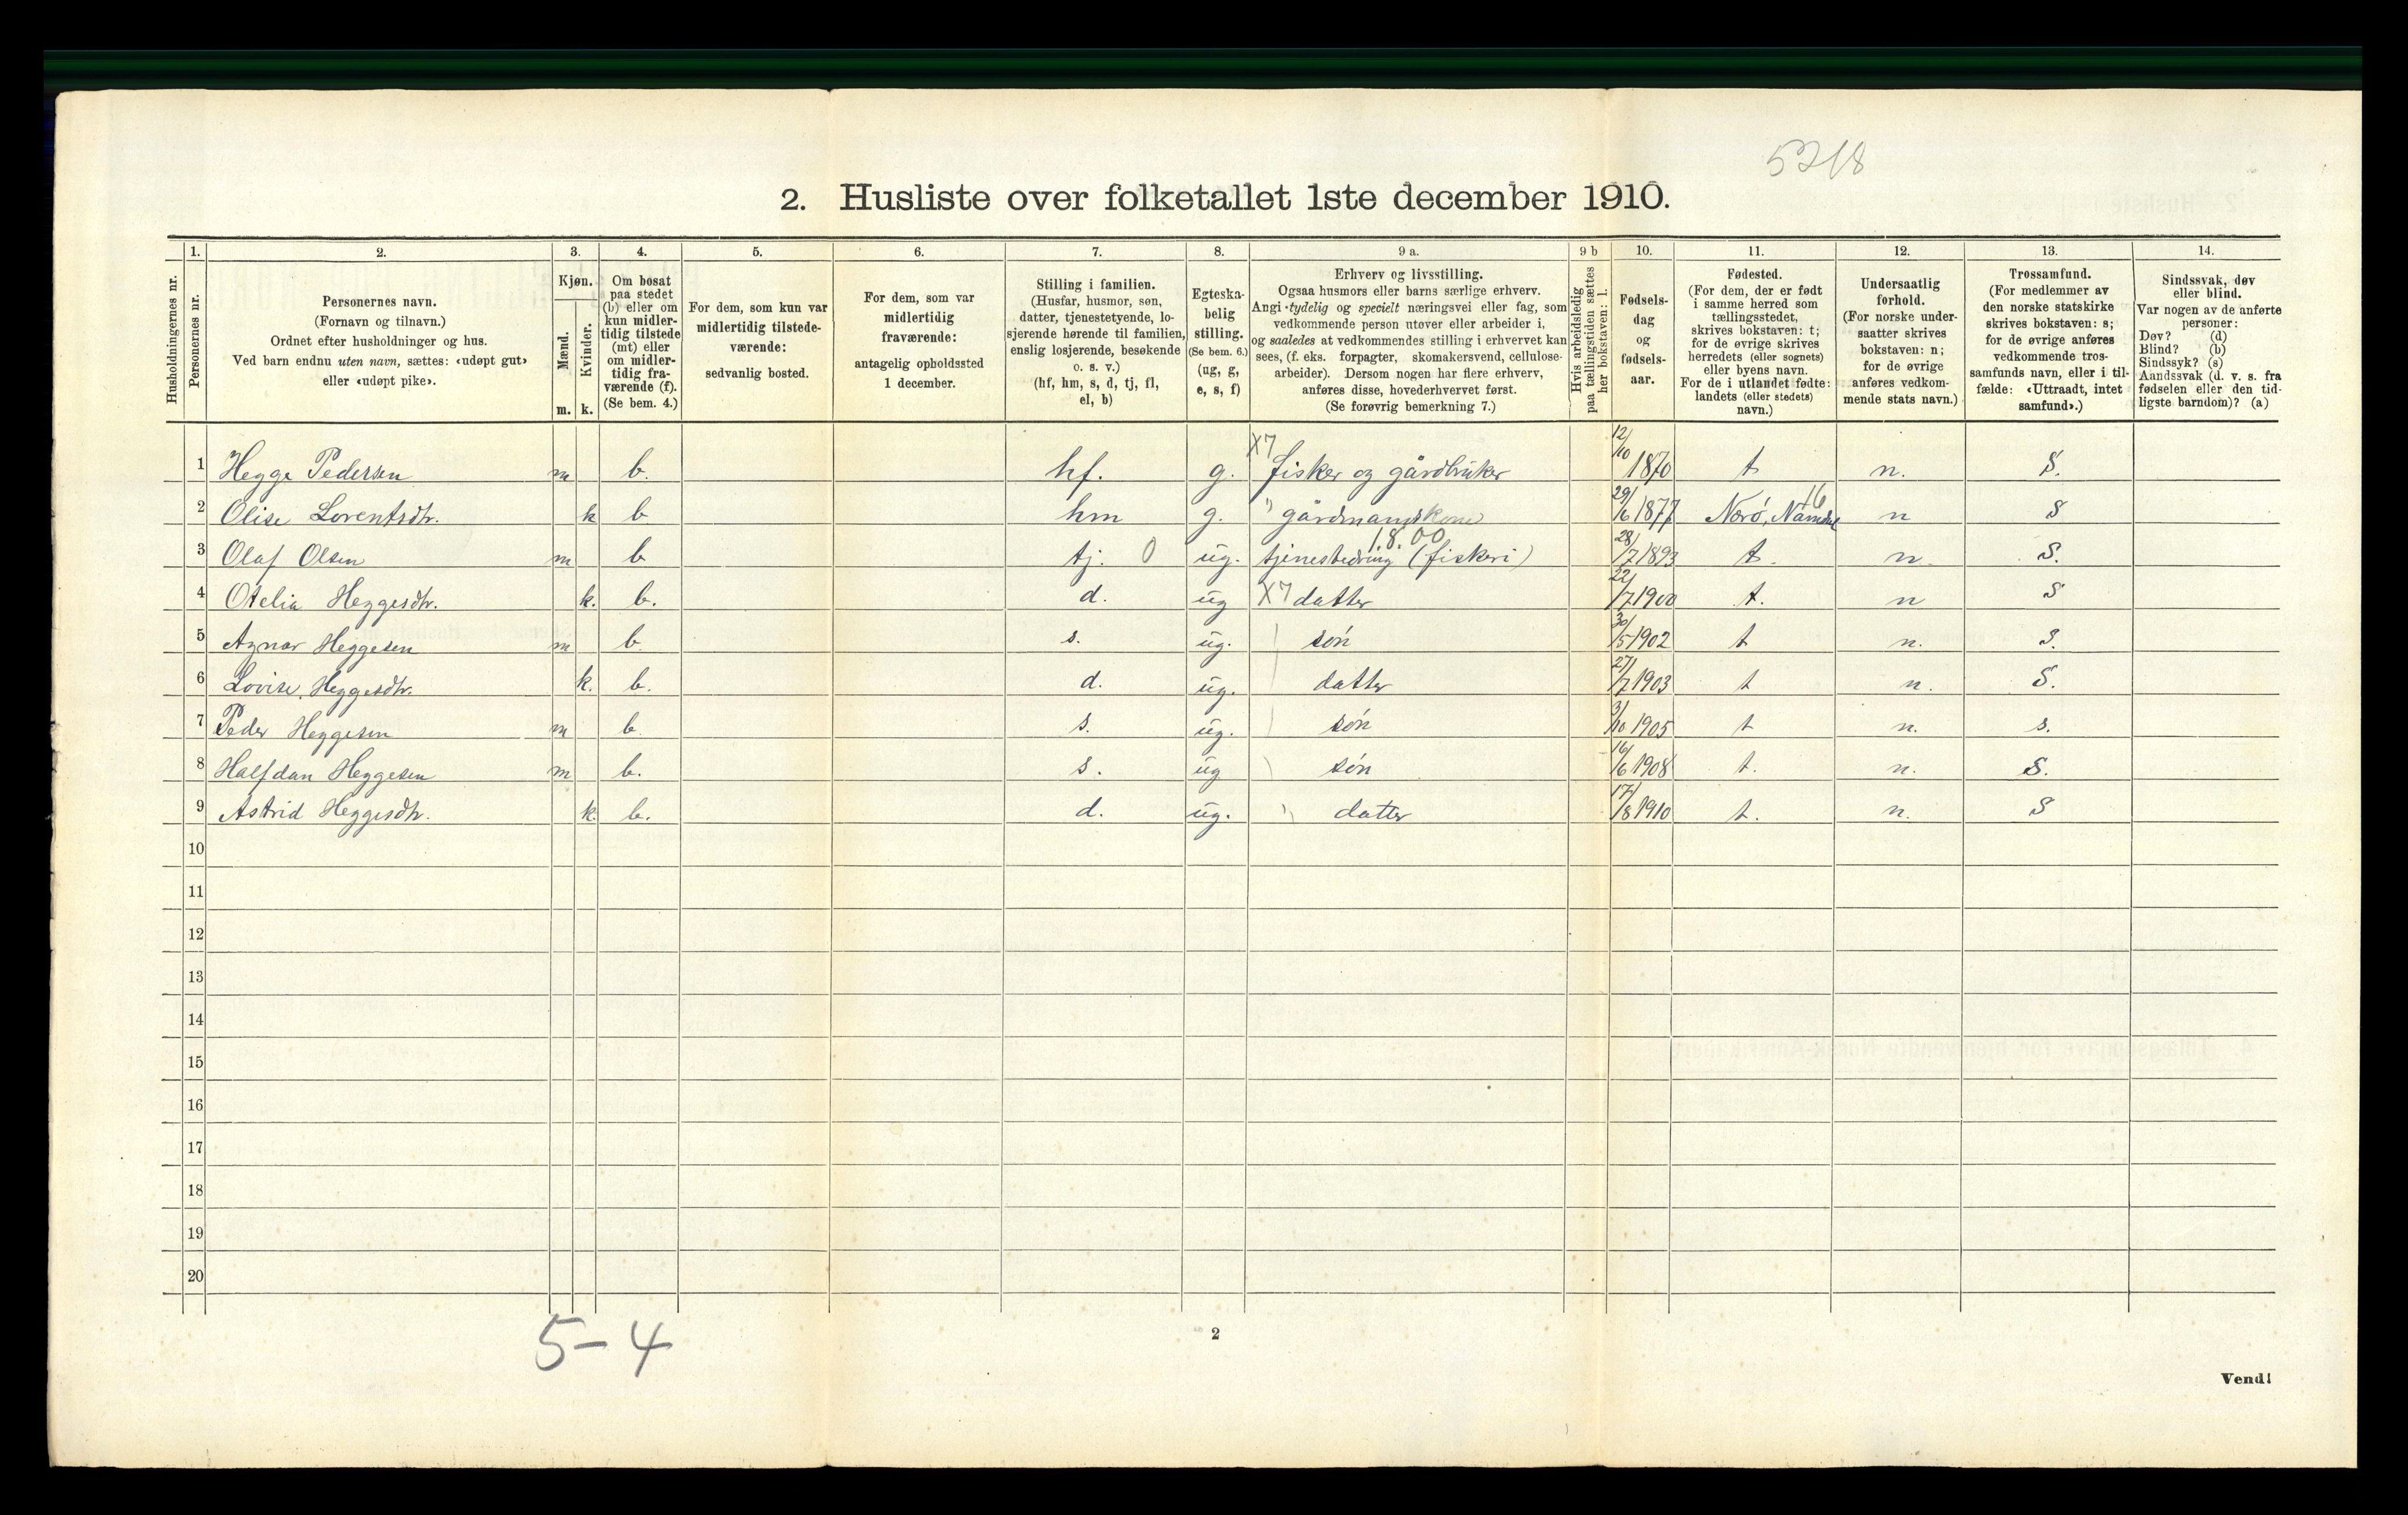 5218
2. Husliste over folketallet 1ste december 1910.
Husholdningernes nr.
1.
Personernes nr.
2.
Personernes navn.
(Fornavn og tilnavn.)
Ordnet efter husholdninger og hus.
Ved barn endnu uten navn, sættes: «udøpt gut»
eller «udøpt pike».
3.
Kjøn.
Mænd.
m.
Kvinder.
k.
4.
Om bosat
paa stedet
(b) eller om
kun midler-
tidig tilstede
(mt) eller
om midler-
tidig fra-
værende (f).
(Se bem. 4.)
5.
For dem, som kun var
midlertidig tilstede-
værende:
sedvanlig bosted.
6.
For dem, som var
midlertidig
fraværende:
antagelig opholdssted
1 december.
7.
Stilling i familien.
(Husfar, husmor, søn,
datter, tjenestetyende, lo-
sjerende hørende til familien,
enslig losjerende, besøkende
o. s. v.)
(hf, hm, s, d, tj, fl,
el, b)
8.
Egteska-
belig
stilling.
(Se bem. 6.)
(ug, g,
e, s, f)
9 a.
Erhverv og livsstilling.
Ogsaa husmors eller barns særlige erhverv.
Angi tydelig og specielt næringsvei eller fag, som
vedkommende person utøver eller arbeider i,
og saaledes at vedkommendes stilling i erhvervet kan
sees, (f. eks. forpagter, skomakersvend, cellulose-
arbeider). Dersom nogen har flere erhverv,
anføres disse, hovederhvervet først.
(Se forøvrig bemerkning 7.)
9 b
Hvis arbeidsledig
paa tællingstiden sættes
her bokstaven: l.
10.
Fødsels-
dag
og
fødsels-
aar.
11.
Fødested.
(For dem, der er født
i samme herred som
tællingsstedet,
skrives bokstaven: t;
for de øvrige skrives
herredets (eller sognets)
eller byens navn.
For de i utlandet fødte:
landets (eller stedets)
navn.)
12.
Undersaatlig
forhold.
(For norske under-
saatter skrives
bokstaven: n;
for de øvrige
anføres vedkom-
mende stats navn.)
13.
Trossamfund.
(For medlemmer av
den norske statskirke
skrives bokstaven: s;
for de øvrige anføres
vedkommende tros-
samfunds navn, eller i til-
fælde: «Uttraadt, intet
samfund».)
14.
Sindssvak, døv
eller blind.
Var nogen av de anførte
personer:
Døv? (d)
Blind? (b)
Sindssyk? (s)
Aandssvak (d. v. s. fra
fødselen eller den tid-
ligste barndom)? (a)
1 Hegge Pedersen m b. hf. g. X7 fisker og gårdbruker 12/10 1870 t n. S.
2 Olise Lorentsdtr. k b hm g. " gårdmandskone 29/6 1877 Nærö, Namdal 16 n S
3 Olaf Olsen m b tj. 0 ug. tjenestedreng (fiskeri) 1.8.00 28/7 1893 t. n. S.
4 Otelia Heggesdtr. k. b. d. ug X7 datter 22/7 1900 t. n S
5 Agnar Heggesen m b. s. ug. søn 30/5 1902 t n. S.
6 Lovise Heggesdtr. k. b. d. ug. datter 27/7 1903 t n. S.
7 Peder Heggesen m b. s. ug. søn 3/10 1905 t n. s.
8 Halfdan Heggesen m b. s. ug søn 16/6 1908 t. n. S.
9 Astrid Heggesdtr. k. b. d. ug. " datter 17/8 1910 t. n. S
10
11
12
13
14
15
16
17
18
19
20
5-4
2
Vend!